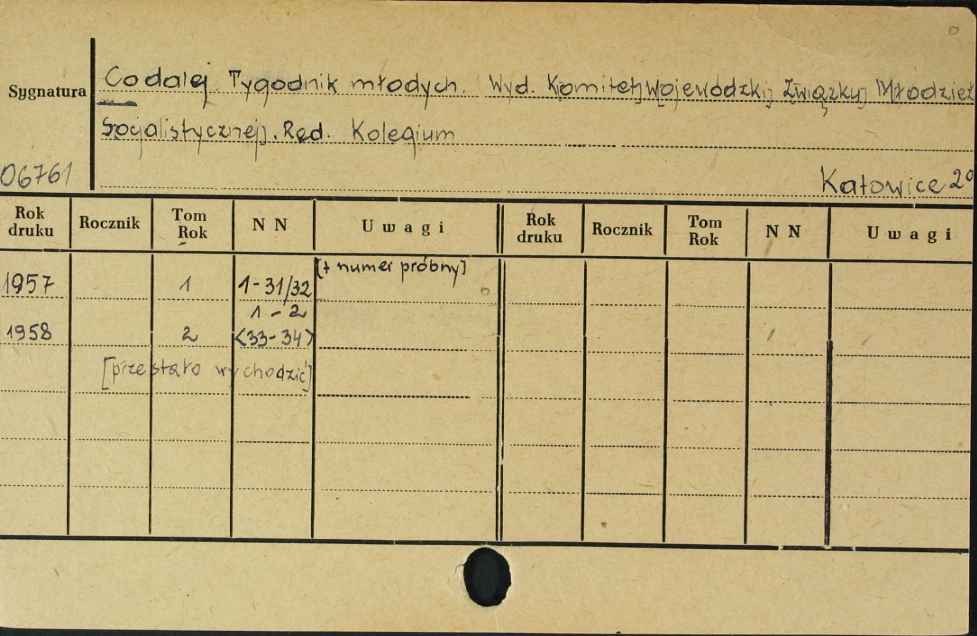 Co dalej. Tygodnik młodych. Wyd. Komitet Wojewódzki Związku Młodzież
Sygnatura
Socjalistycznej. Red. Kolegium
06761
Katowice 2°
Rok druku Rocznik Tom Rok N N Uwagi Rok druku Rocznik Tom Rok N N Uwagi
[+ numer próbny]
1957 1 1-31/32
1-2
1958 2 <33-34>
[przestało wychodzić]